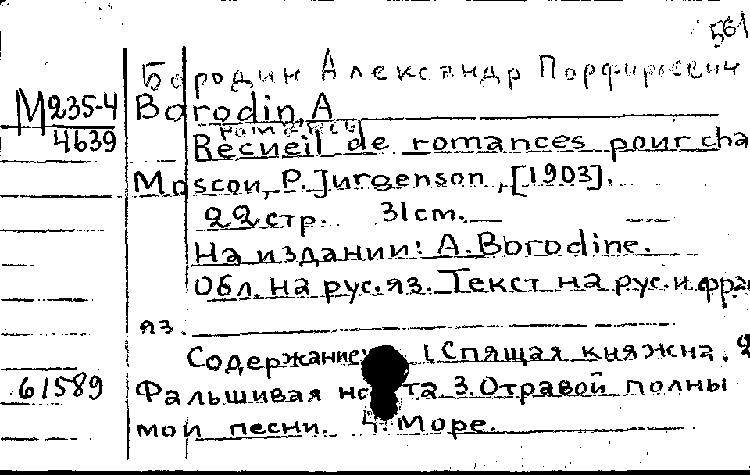 561
Бородин Александр Порфирьевич
М235-4 Borodin, A
4639 Романсы
Recueil de romances pour cha
Moscou, P. Jurgenson, [1903].
22 стр. 31 cm.
На издании: A. Borodine.
Обл. на рус. яз. Текст на рус. и фран
яз.
Содержание: 1. Спящая княжна. 2
61589 Фальшивая нота 3. Отравой полны
мои песни. 4. Море.